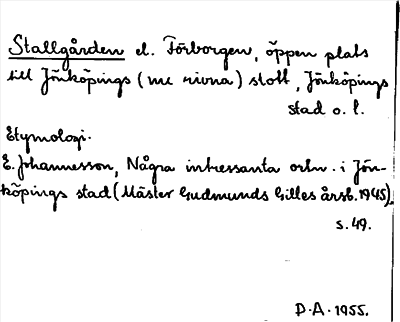 Stallgården el. Förborgen, öppen plats
till Jönköpings (nu rivna) slott, Jönköpings
stad o. l.
Etymologi.
E. Johannesson, Några intressanta ortn. i Jön-
köpings stad (Mäster Gudmunds Gilles årsb. 1945),
s. 49.
D.A. 1955.